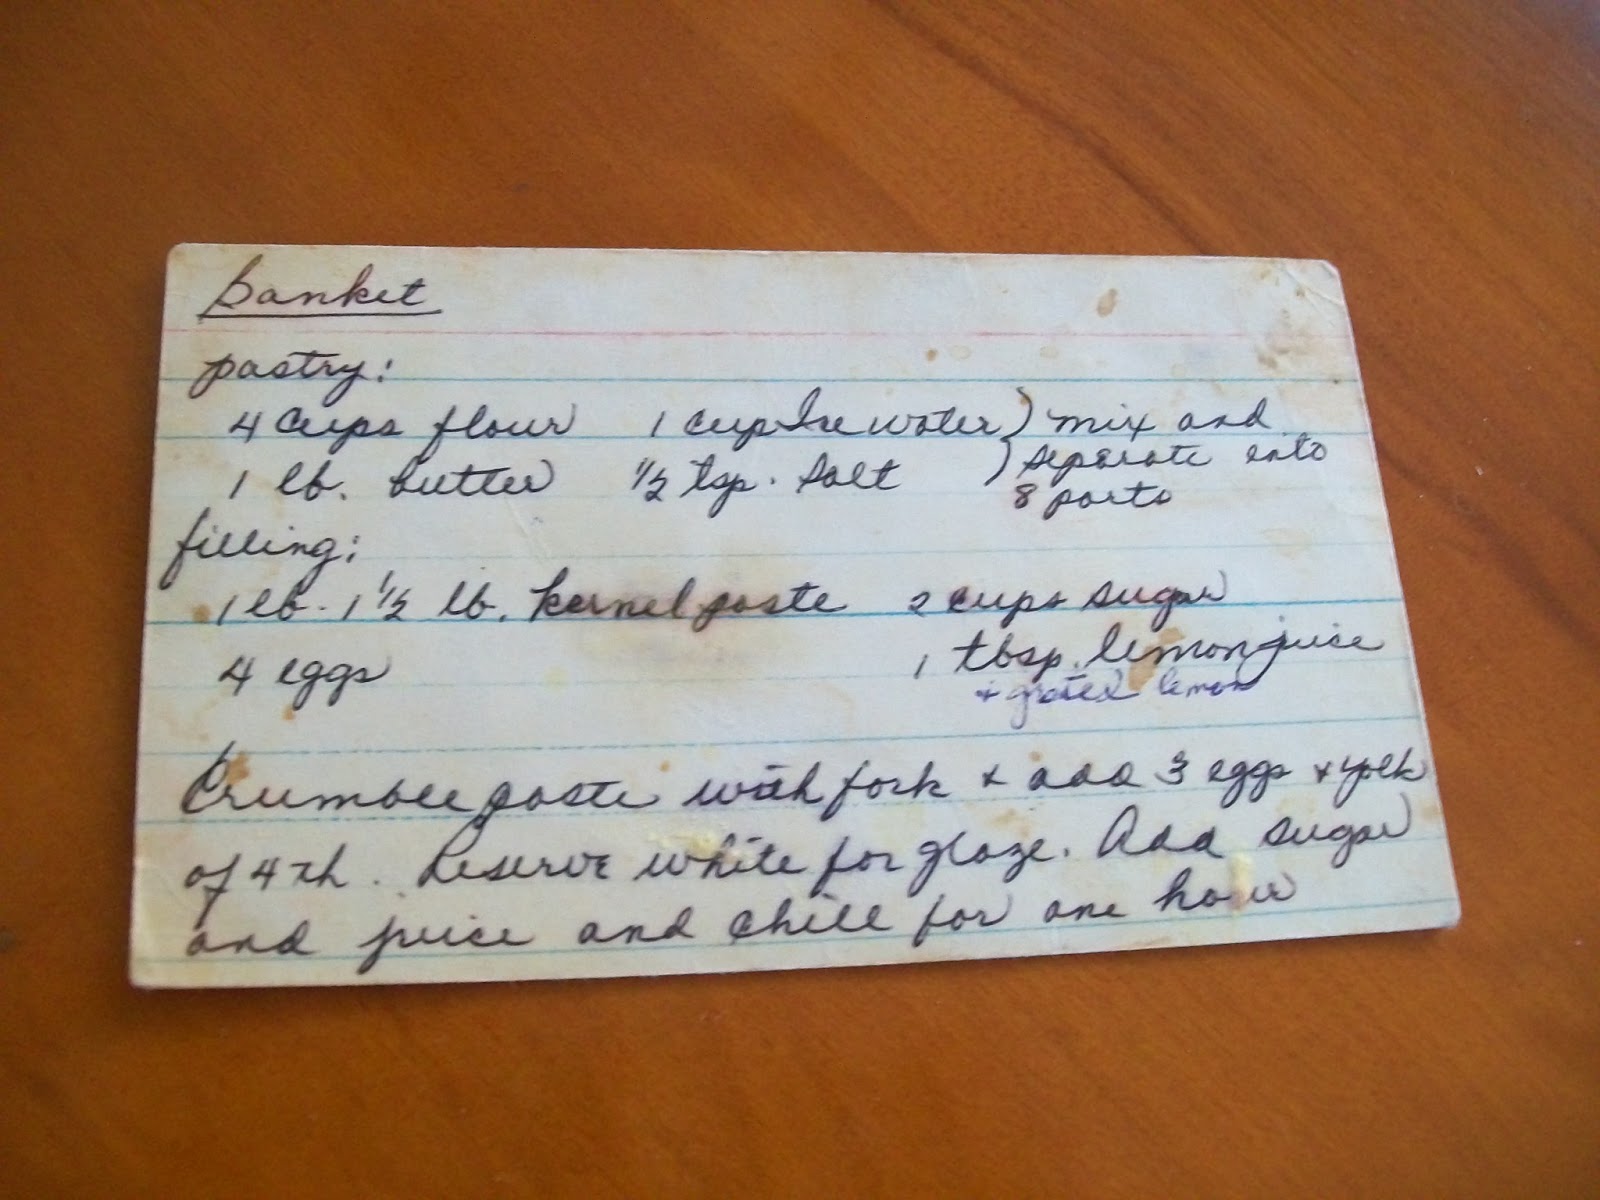 Banket
pastry:
4 cups flour 1 cup Ice water ) mix and
1 lb. butter 1/2 tsp. salt ) separate into
8 parts
filling:
1 lb. 1 1/2 lb. Kernel paste 2 cups sugar
4 eggs 1 tbsp. lemon juice
+ grated lemon
Crumble paste with fork + add 3 eggs + yolk
of 4th. Reserve white for glaze. Add sugar
and juice and chill for one hour